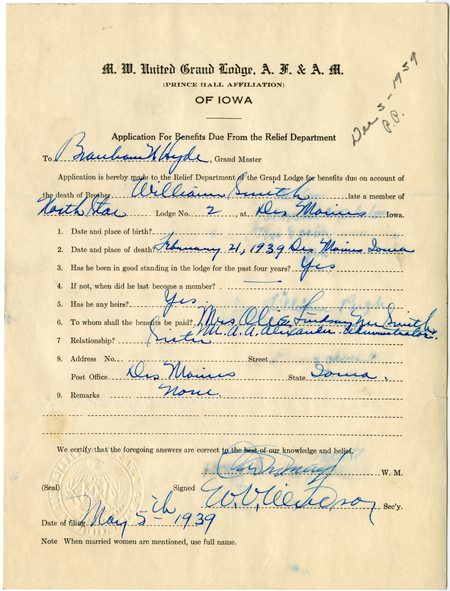 M. W. United Grand Lodge, A. F. & A. M.
(PRINCE HALL AFFILIATION)
OF IOWA
Dec 5-1939
P.P.
Application For Benefits Due From the Relief Department
To Branham W Hyde, Grand Master
Application is hereby made to the Relief Department of the Grand Lodge for benefits due on account of
the death of Brother William Smith late a member of
North Star Lodge No. 2, at Des Moines Iowa.
1. Date and place of birth?
2. Date and place of death? February 21, 1939 Des Moines Iowa
3. Has he been in good standing in the lodge for the past four years? Yes
4. If not, when did he last become a member? —
5. Has he any heirs? Yes.
6. To whom shall the benefits be paid? Mrs Olie Lindsay Smith
Mr. A. A. Alexander. Administrator.
7. Relationship? Sister
8. Address No. Street
Post Office Des Moines State Iowa.
9. Remarks None.
We certify that the foregoing answers are correct to the best of our knowledge and belief.
W. M.
(Seal) Signed Sec'y.
Date of filing May 5th 1939
Note When married women are mentioned, use full name.